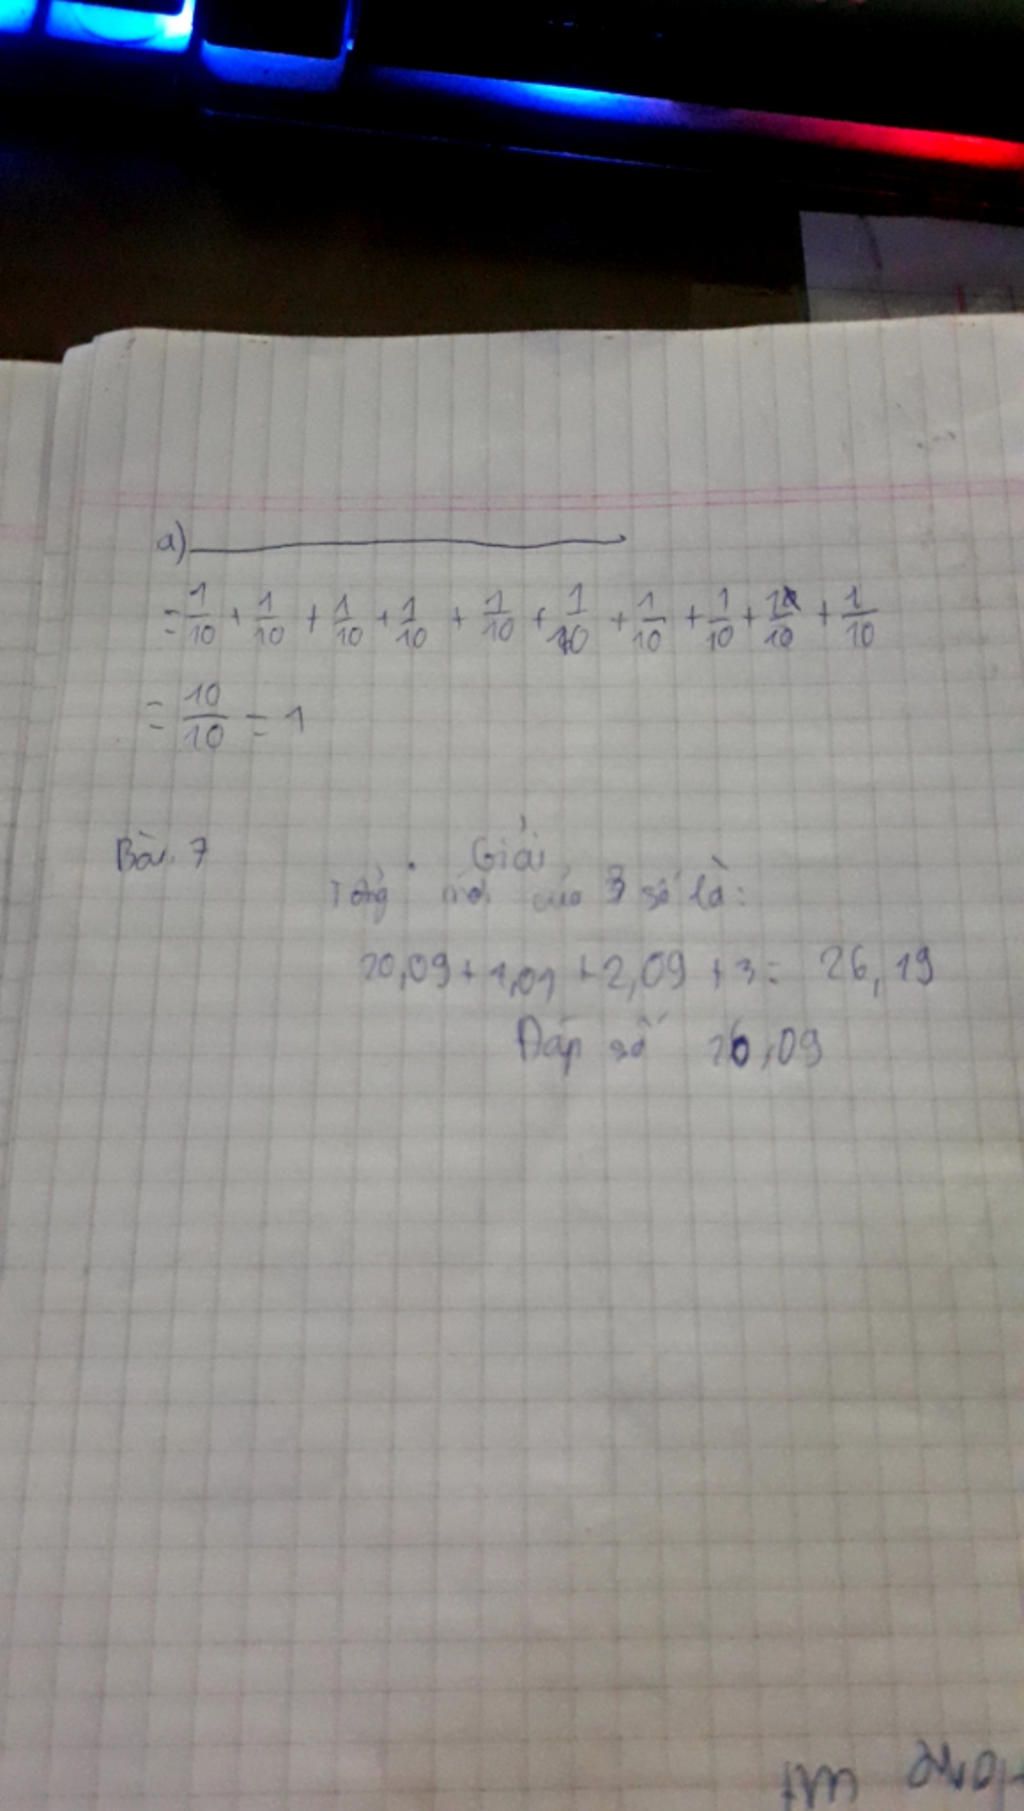 a)
= 1/10 + 1/10 + 1/10 + 1/10 + 1/10 + 1/10 + 1/10 + 1/10 + 1/10 + 1/10
= 10/10 = 1
Bài 7
Giải
Tổng mới của 3 số là:
20,09 + 1,01 + 2,09 + 3 = 26,19
Đáp số 26,09